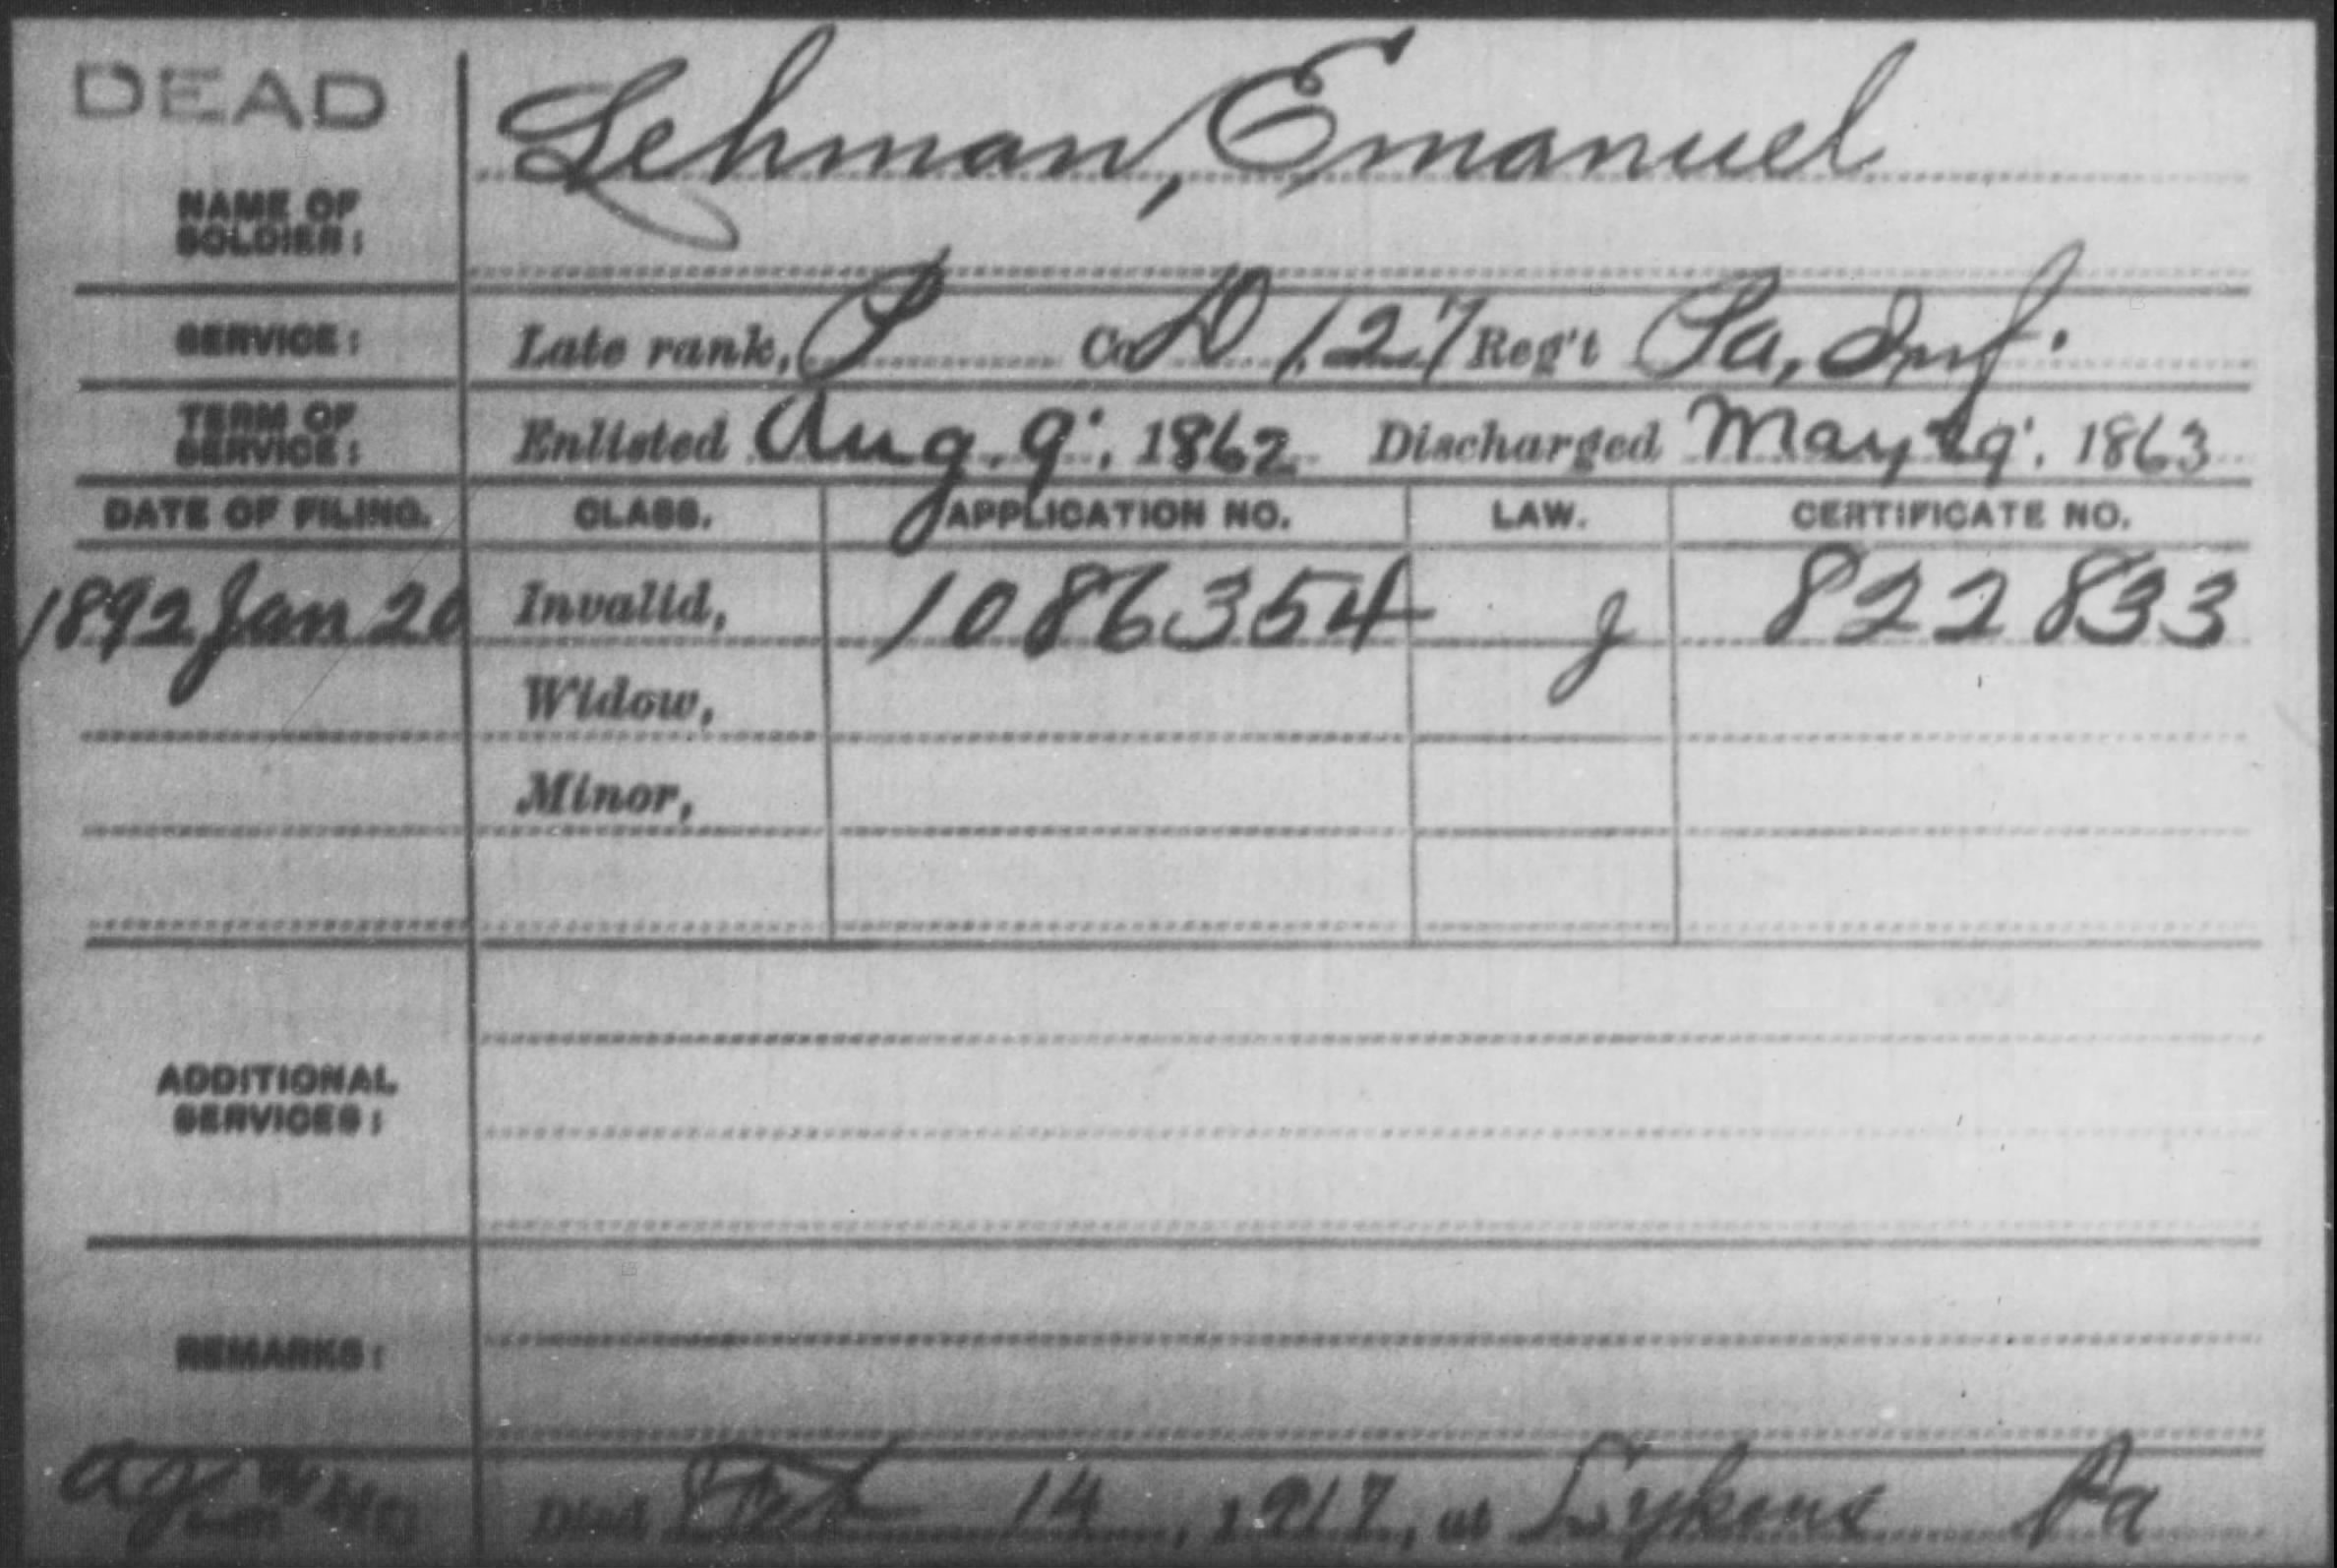 DEAD
Lehman, Emanuel
NAME OF
SOLDIER:
SERVICE: Late rank, P Co. D 127 Reg't Pa, Inf.
TERM OF
SERVICE: Enlisted Aug. 9, 1862 Discharged May 29, 1863
DATE OF FILING. CLASS. APPLICATION NO. LAW. CERTIFICATE NO.
1892 Jan 20 Invalid, 1086354 J 822833
Widow,
Minor,
ADDITIONAL
SERVICES:
REMARKS:
Died 14, 1917, at Lykens Pa